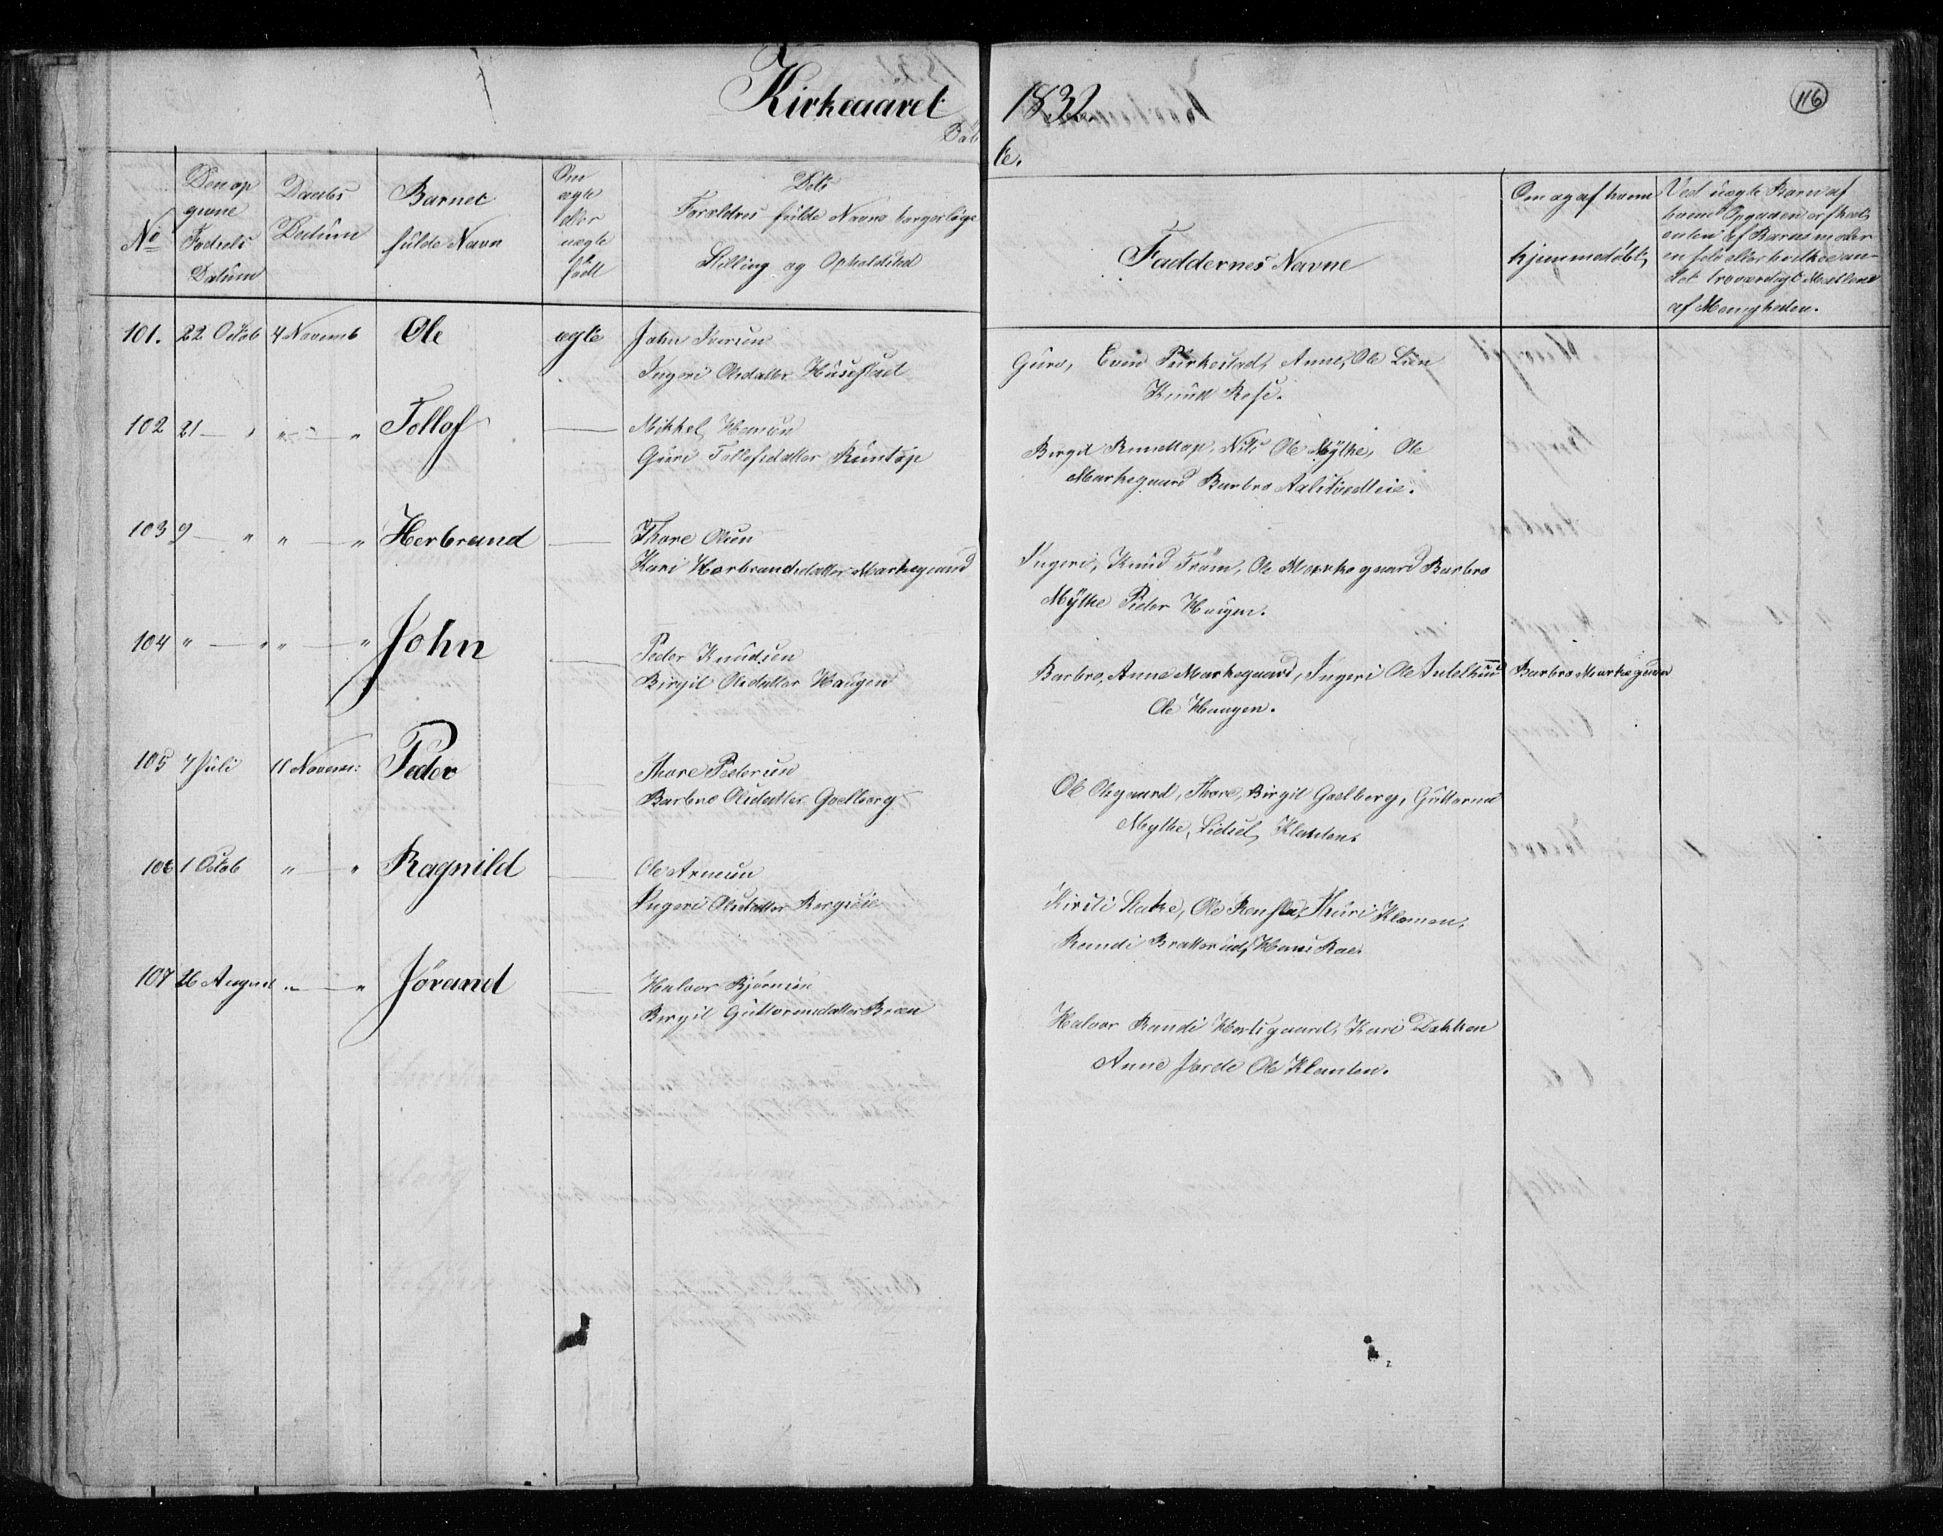 Kirkeaaret 1832.
116
Døbte.
No
Den op
givne
Fødsels
Datum
Daabs
Datum
Barnet
fulde Navn
Om
ægte
eller
uægte
født
Dets
Forældres fulde Navne borgerlige
Stilling og Opholdsted
Faddernes Navne
Om og af hvem
hjemmedøbt
Ved uægte Barn af
hvem Opgaven er skeet,
enten af Barnemoder
en selv eller hvilken an-
det troværdigt Medlem
af Menigheden.
101. 22 Octob 4 Novemb Ole ægte John Iversen
Ingeri Olsdatter Husestad
Guro, Even Anne, Ole Lien
Knud Rose.
102 21 — " " — " Tollef — Mikkel Hansen
Guri Tollefsdatter Runtop
Birgit Nils Ole Mythe, Ole
Markegaard Barbro
103 9 — " " — " Herbrand — Thore Olsen
Kari Herbrandsdatter Markegaard
Ingeri, Knud Trøm, Ole Markegaard Barbro
Mythe Peder Haugen.
104 " — " " — " John — Peder Knudsen
Birgit Olsdatter Haugen
Barbro, Anne Markegaard, Ingeri Ole
Ole Haugen.
Barbro Markegaard
105 7 Juli 11 Novem: Peder — Thore Pedersen
Barbro Olsdatter Goelberg
Ole Olsgaard, Thore, Birgit Goelberg, Guttorm
Mythe, Sidsel, Klanten.
106 1 Octob " — " Ragnild — Ole Arnesen
Ingeri Olsdatter Bergseie
Kirsti Ole Thuri Klemen,
Randi Bratterud, Hans Roe.
107 26 August " — " Jørand — Halvor Bjørnsen
Birgit Guttormsdatter Bræn
Halvor Randi Kari Dokken
Anne Jorde Ole Klanten.